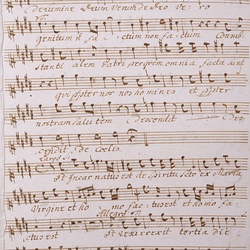 Deum verum de Deo vero
genitum n fa ctum non factum Consub
stanti alem Patri per quem omnia facta sunt
qui propter nos homines et propter
nostram salutem Descendit De
cendit De Coelis
Largo
et Incarnatus est de Spiritu Sto ex Maria
Virgine et ho mo factus est et homo fa
Allegro
ctus est et resurrexit tertia die